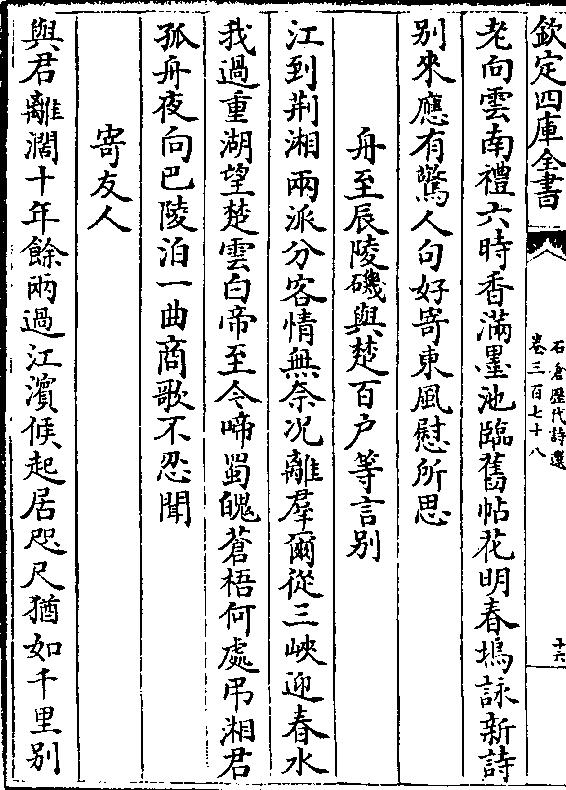 欽定四庫全書
石倉歷代詩選
卷三百七十八
十六
老向雲南禮六時香滿墨池臨舊帖花明春塢詠新詩
別來應有驚人句好寄東風慰所思
舟至辰陵磯與楚百户等言别
江到荆湘兩派分客情無奈况離羣爾從三峽迎春水
我過重湖望楚雲白帝至今啼蜀魄蒼梧何處弔湘君
孤舟夜向巴陵泊一曲商歌不忍聞
寄友人
與君離濶十年餘兩過江濵候起居咫尺猶如千里别